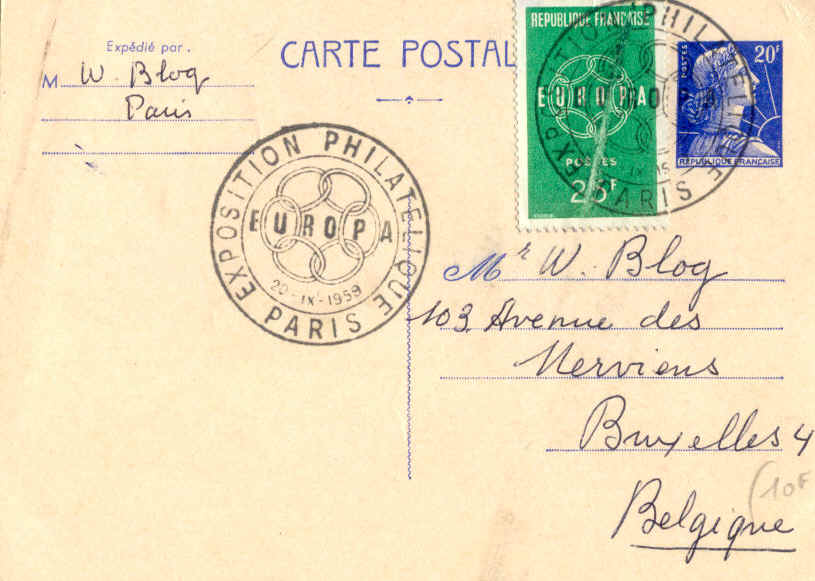 Expédié par.
M W. Bloq
Paris
CARTE POSTAL
REPUBLIQUE FRANÇAISE
EUROPA
POSTES
25F
POSTES
20F
REPUBLIQUE FRANÇAISE
EXPOSITION PHILATELIQUE
EUROPA
20-IX-1959
PARIS
PARIS
Mr W. Bloq
103 Avenue des
Nerviens
Bruxelles 4
Belgique
10F